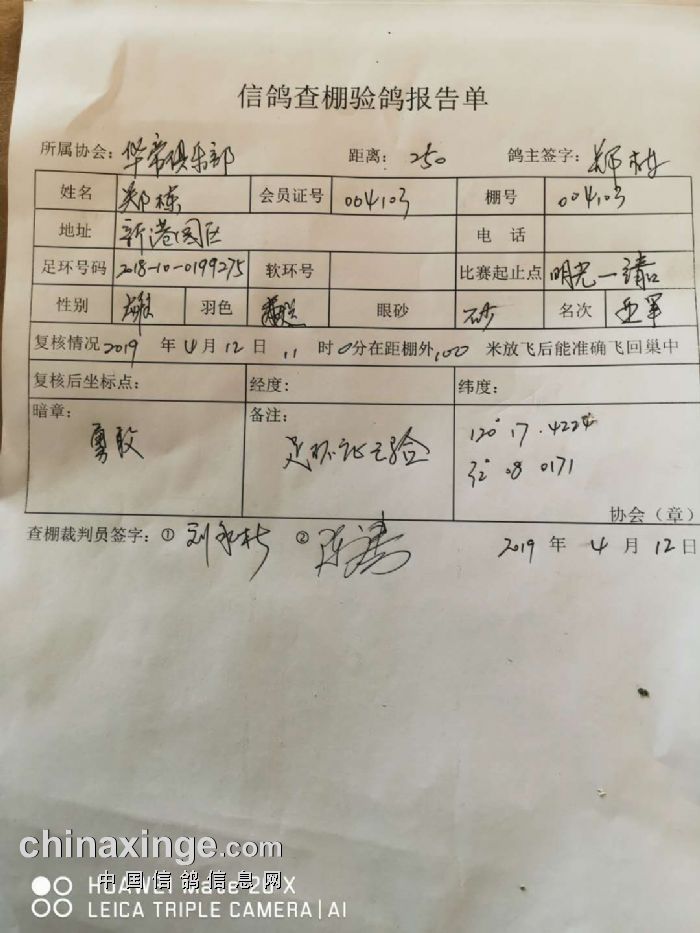 信鸽查棚验鸽报告单
所属协会: 华常俱乐部 距离: 250 鸽主签字: 郑栋
姓名 郑栋 会员证号 004103 棚号 004103
地址 新港园区 电 话
足环号码 2018-10-0199275 软环号 比赛起止点 明光一靖口
性别 雌 羽色 眼砂 砂 名次 亚军
复核情况 2019 年 4 月 12 日 11 时 0 分在距棚外 100 米放飞后能准确飞回巢中
复核后坐标点: 经度: 纬度:
暗章: 勇敢 备注: 足环证已验
120° 17. 4224
32° 08 0171
协会（章）
查棚裁判员签字: ① ② 2019 年 4 月 12 日
chinaxinge.com
中国信鸽信息网
HUAWEI Mate 20 X
LEICA TRIPLE CAMERA | AI